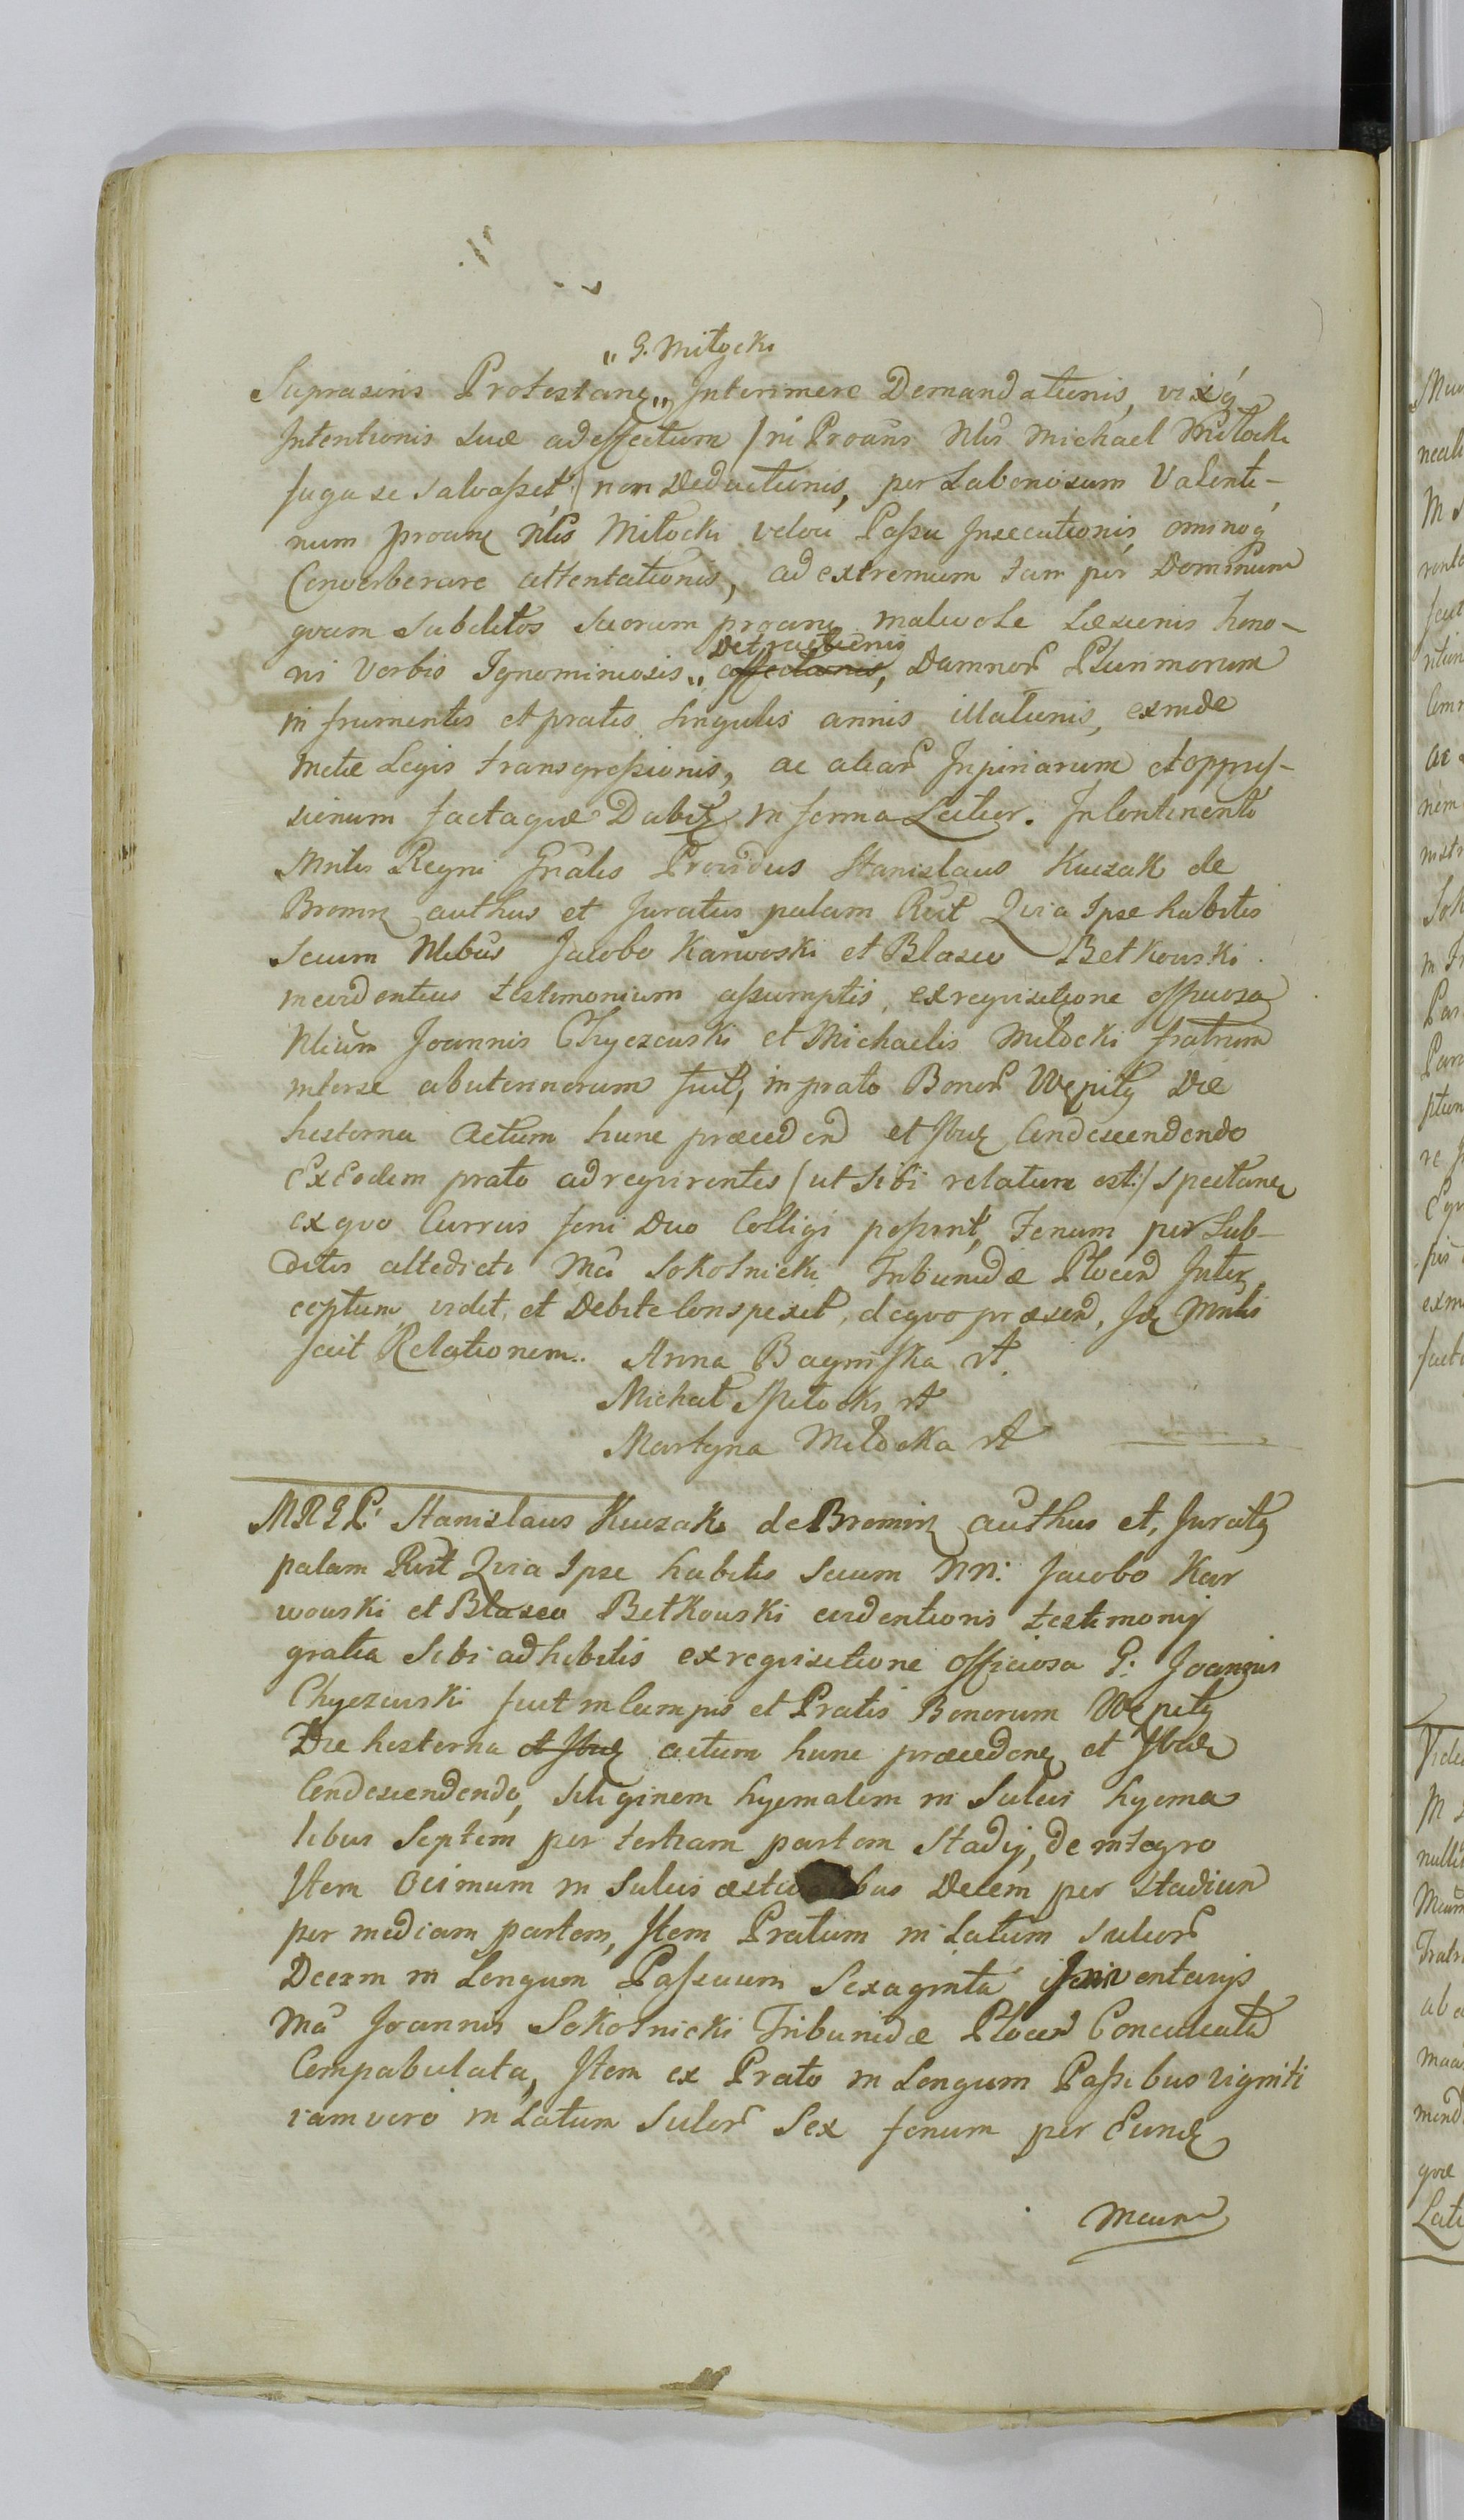 „G. Miłocki
Suprascris Protestane„ Interimere Demandationis, vixq́
Intentionis suæ ad effectum / ni Proans Nlis Michael Miłocki
fuga se salvasset / non Deductionis, per Laboriosum Valenti-
num proane Nlis Miłocki veloci Passu Insecutionis, ominoq́
Converberare attentationis, ad extremum tam per Dominum
quam subditos suorum proane malivole Læsionis hono-
ri verbis Ignominiosis„ Detractionis affectionis, Damnor Plurimorum
in frumentis et pratis singulis annis illationis, exinde
metæ Legis transgressionis, ac aliar Injuriarum et oppres-
sionum factaque Dabit in forma Latior. In Continenti
Mntis Regni Gnalis Providus Stanislaus Kuczak de
Bromin authus et Juratus palam Rcit Quia Ipse habitis
Secum Nlibus Jacobo Karwoski et Blasio Betkowski
in evidentius testimonium assumptis, ex requisitione officiosa
Nlium Joannis Chyczewski et Michaelis Miłocki fratrum
inter se ab uterinorum fuit, in prato Bonor Wępiły Die
hesterna Actum hunc præceden et Ibid Condescendendo
Ex Eodem prato ad requirentes / ut sibi relatum est / spectane
ex quo Currus foni Duo Colligi possent, Fenum per Sub-
ditos altedicti Mci Sokolnicki Tribunidæ Plocen Inter
ceptum vidit, et Debite Conspexit, de quo præsen, Id Mntis
fcit Relationem. Anna Bagnińska rA.
Michał Miłocki rA
Martyna Miłocka rA
MRGP. Stanislaus Kuczak de Bromin authus et, Juratq
palam Rcit Quia Ipse habitis Secum NN: Jacobo Kar
wowski et Blasio Betkowski evidentioris testimonij
gratia sibi adhibitis ex requisitione officiosa G: Joannis
Chyczewski fuit in Campis et Pratis Bonorum Wępiły
Die hesterna et Ibid actum hunc præceden et Ibid
Condescendendo, Siliginem hyemalem in Sulcis hyema
libus Septem per tertiam partem Stadij, de integro
Item Ocimum in Sulcis æsti bus Decem per Stadium
per mediam partem, Item Pratum in Latum sulcor
Decem in Longum Passuum Sexaginta Inventarijs
Mci Joannis Sokolnicki Tribunidæ Plocen Conculcata
Compabulata, Item ex Prato in Longum Passibus viginti
iam vero in Latum Sulcor Sex fenum per Eund
Mcum